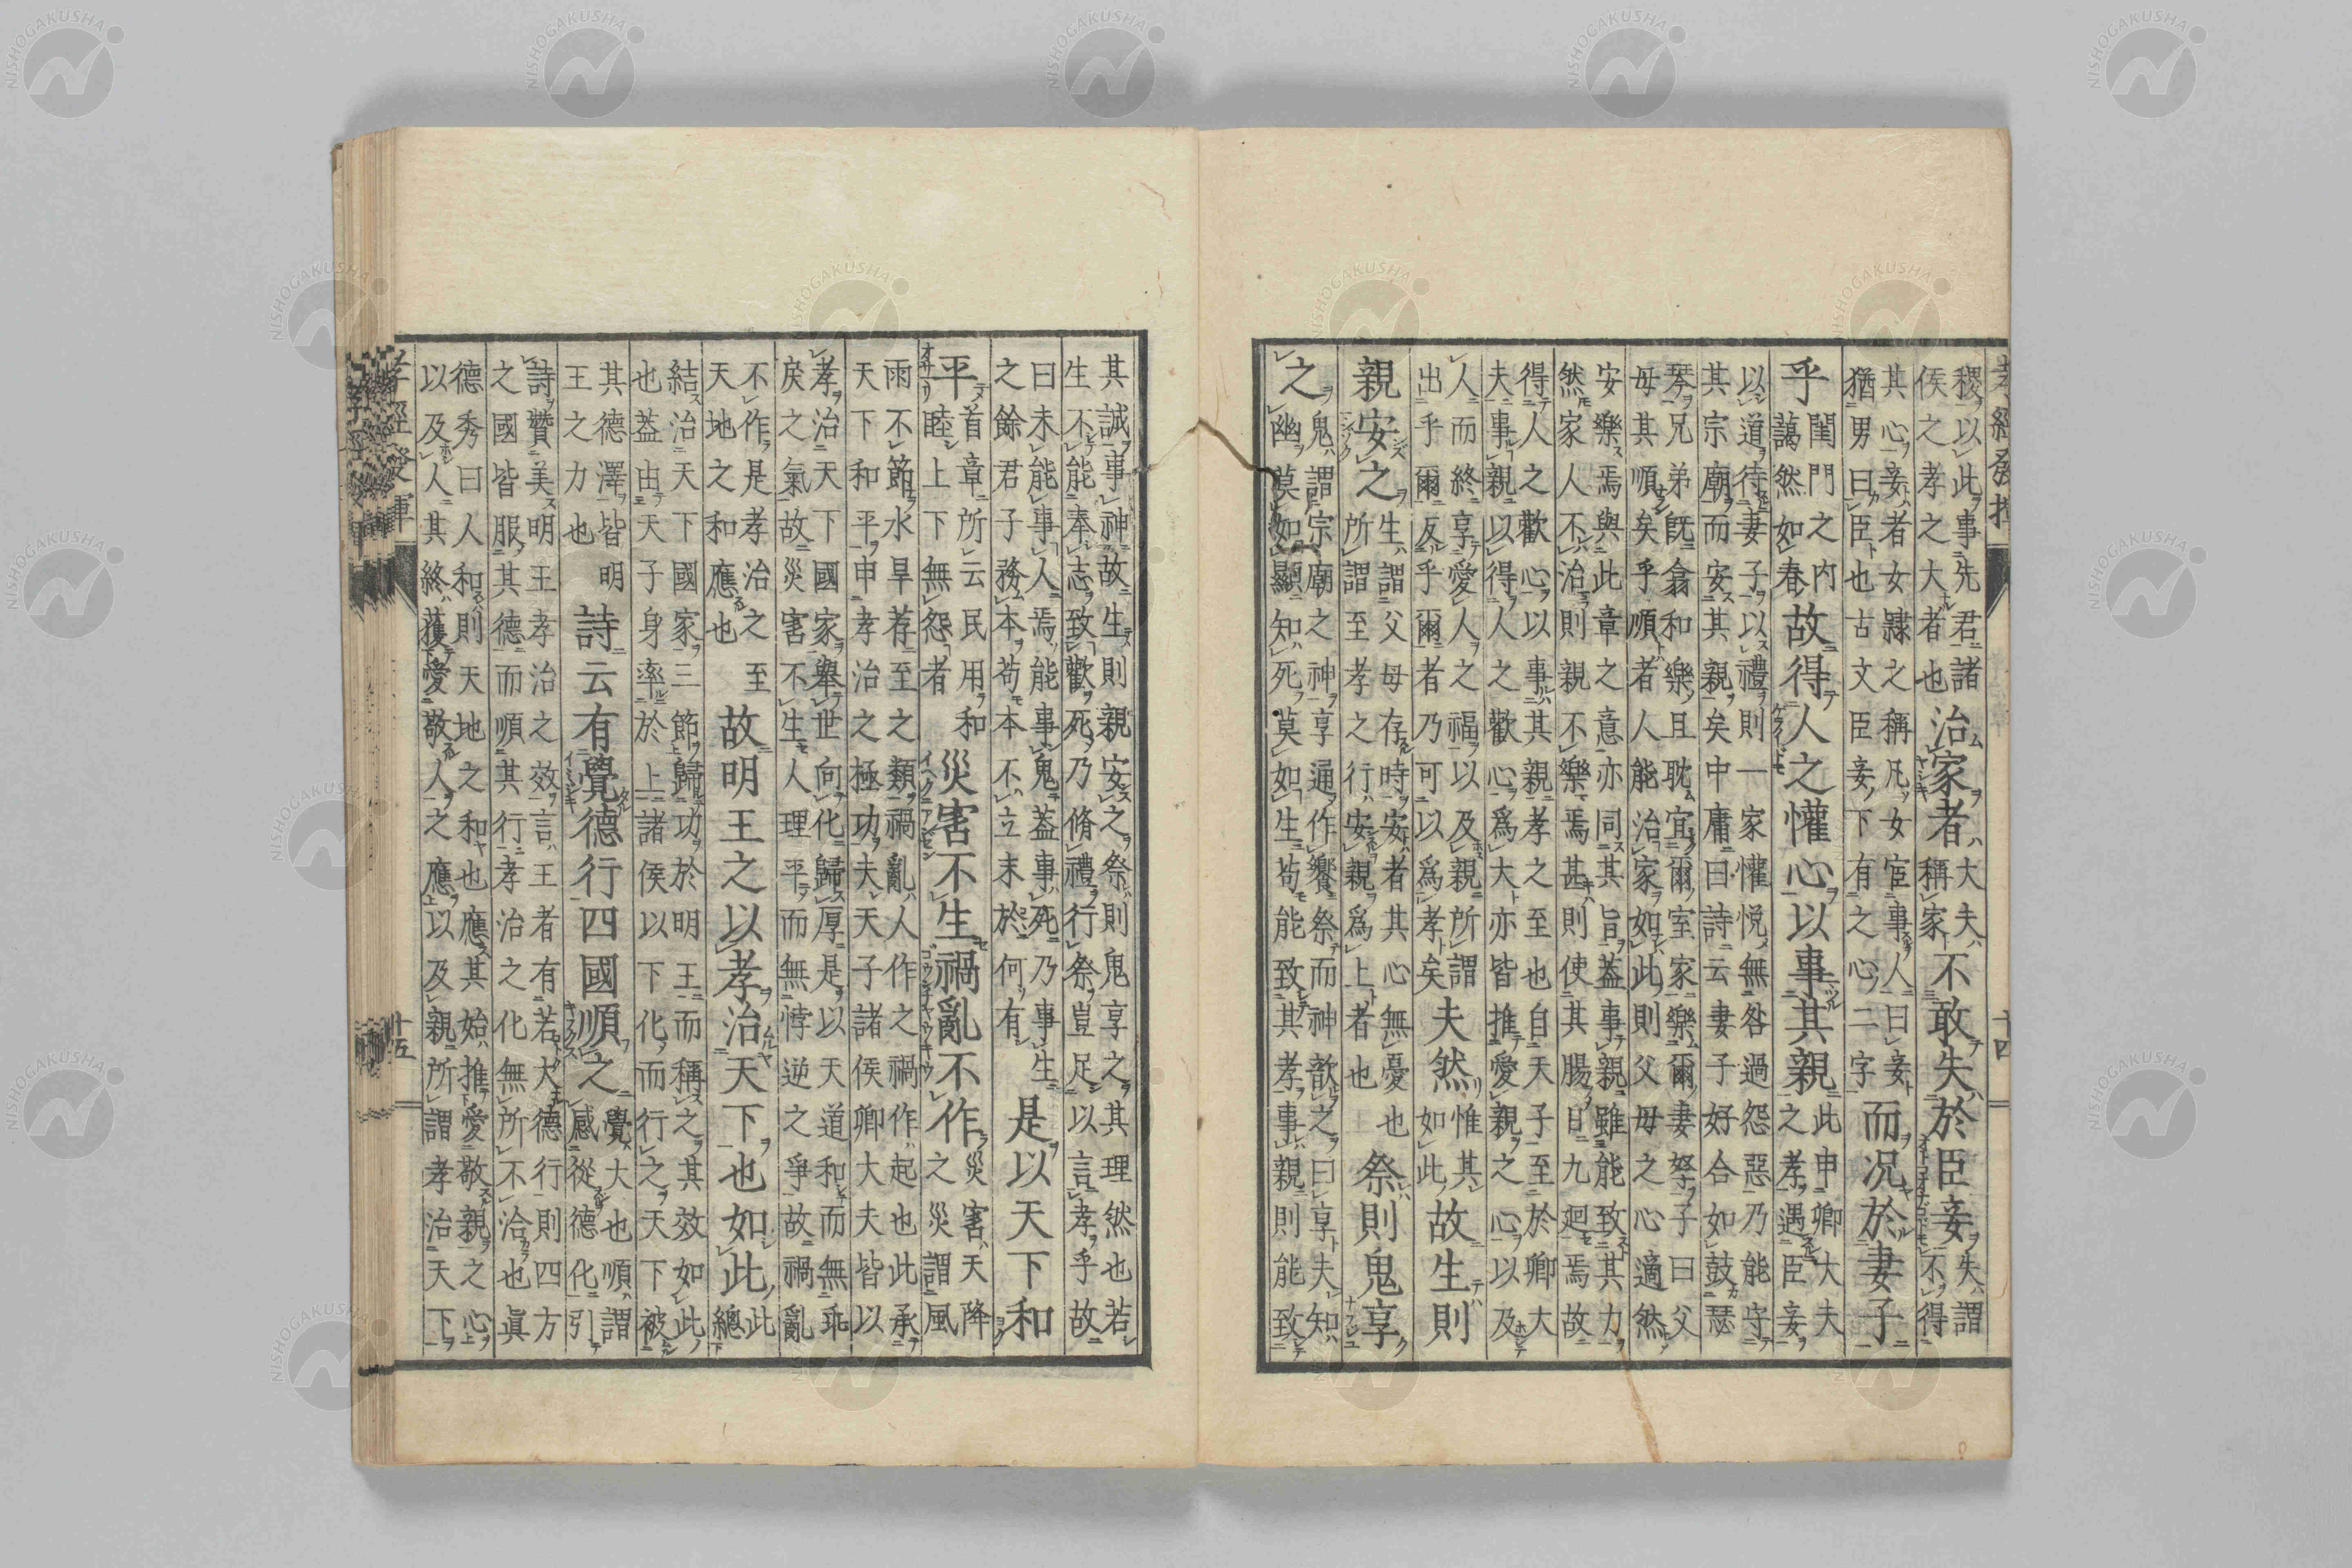 孝經發揮　十四
稷以此事先君諸
侯之孝之大者也
治家者
大夫
稱家
不敢失於臣妾
失謂
不得
其心妾者女隷之稱凡女宦事人曰妾
猶男曰臣也古文臣妾下有之心二字
而況於妻子
乎
閨門之内
藹然如春
故得人之懽心以事其親
此申卿大夫
之孝遇臣妾
以道待妻子以禮則一家懽悦無咎過怨惡乃能守
其宗廟而安其親矣中庸曰詩云妻子好合如鼓瑟
琴兄弟既翕和樂且耽宜爾室家樂爾妻孥子曰父
母其順矣乎順者人能治家如此則父母之心適然
安樂焉與此章之意亦同其旨蓋事親雖能致其力
然家人不治則親不樂焉甚則使其腸日九廻焉故
得人之歡心以事其親孝之至也自天子至於卿大
夫事親以得人之歡心爲大亦皆推愛親之心以及
人而終享愛人之福以及親所謂
出乎爾反乎爾者乃可以爲孝矣
夫然
惟其
如此
故生則
親安之
生謂父母存時安者其心無憂也
所謂至孝之行安親爲上者也
祭則鬼享
之
鬼謂宗廟之神享通作饗祭而神歆之曰享夫知
幽莫如顯知死莫如生苟能致其孝事親則能致
其誠事神故生則親安之祭則鬼享之其理然也若
生不能奉志致歡死乃脩禮行祭豈足以言孝乎故
曰未能事人焉能事鬼蓋事死乃事生
之餘君子務本苟本不立末於何有
是以天下和
平
首章所云民用和
睦上下無怨者
災害不生禍亂不作
災害天降
之災謂風
雨不節水旱荐至之類禍亂人作之禍作起也此承
天下和平申孝治之極功夫天子諸侯卿大夫皆以
孝治天下國家舉世向化歸厚是以天道和而無乖
戾之氣故災害不生人理平而無悖逆之爭故禍亂
不作是孝治之至
天地之和應也
故明王之以孝治天下也如此
此
總
結治天下國家三節歸功於明王而稱之其效如此
也蓋出天子身率於上諸侯以下化而行之天下被
其德澤皆明
王之力也
詩云有覺德行四國順之
覺大也順謂
感從德化引
詩贊美明王孝治之效言王者有若大德行則四方
之國皆服其德而順其行孝治之化無所不洽也眞
德秀曰人和則天地之和也應其始推愛敬親之心
以及人其終獲愛敬人之應以及親所謂孝治天下
孝經發揮　十五